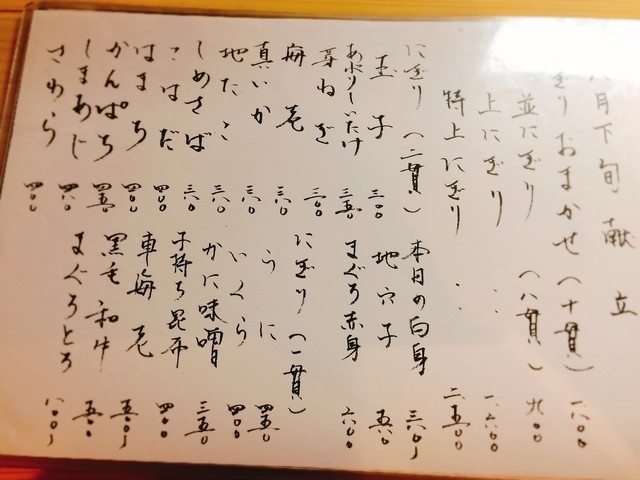 八月下旬献立
ぎりおまかせ(十貫) 一八〇〇
並にぎり(八貫) 九〇〇
上にぎり 〃 一.六〇〇
特上にぎり 〃 二.五〇〇
にぎり(二貫)
玉子 三〇〇
あぶりしいたけ 三五〇
芽ねぎ 三〇〇
海老 三八〇
真いか 三八〇
地たこ 三八〇
しめさば 三八〇
こはだ 四〇〇
はまち 四〇〇
かんぱち 四五〇
しまあじ 四八〇
さわら 四〇〇
本日の白身 三八〇〜
地穴子 五六〇
まぐろ赤身
にぎり(一貫)
うに 四五〇
いくら 四〇〇
かに味噌 三五〇
子持ち昆布 四〇〇
車海老 五五〇〜
黒毛和牛 五〇〇
まぐろとろ 八〇〇〜